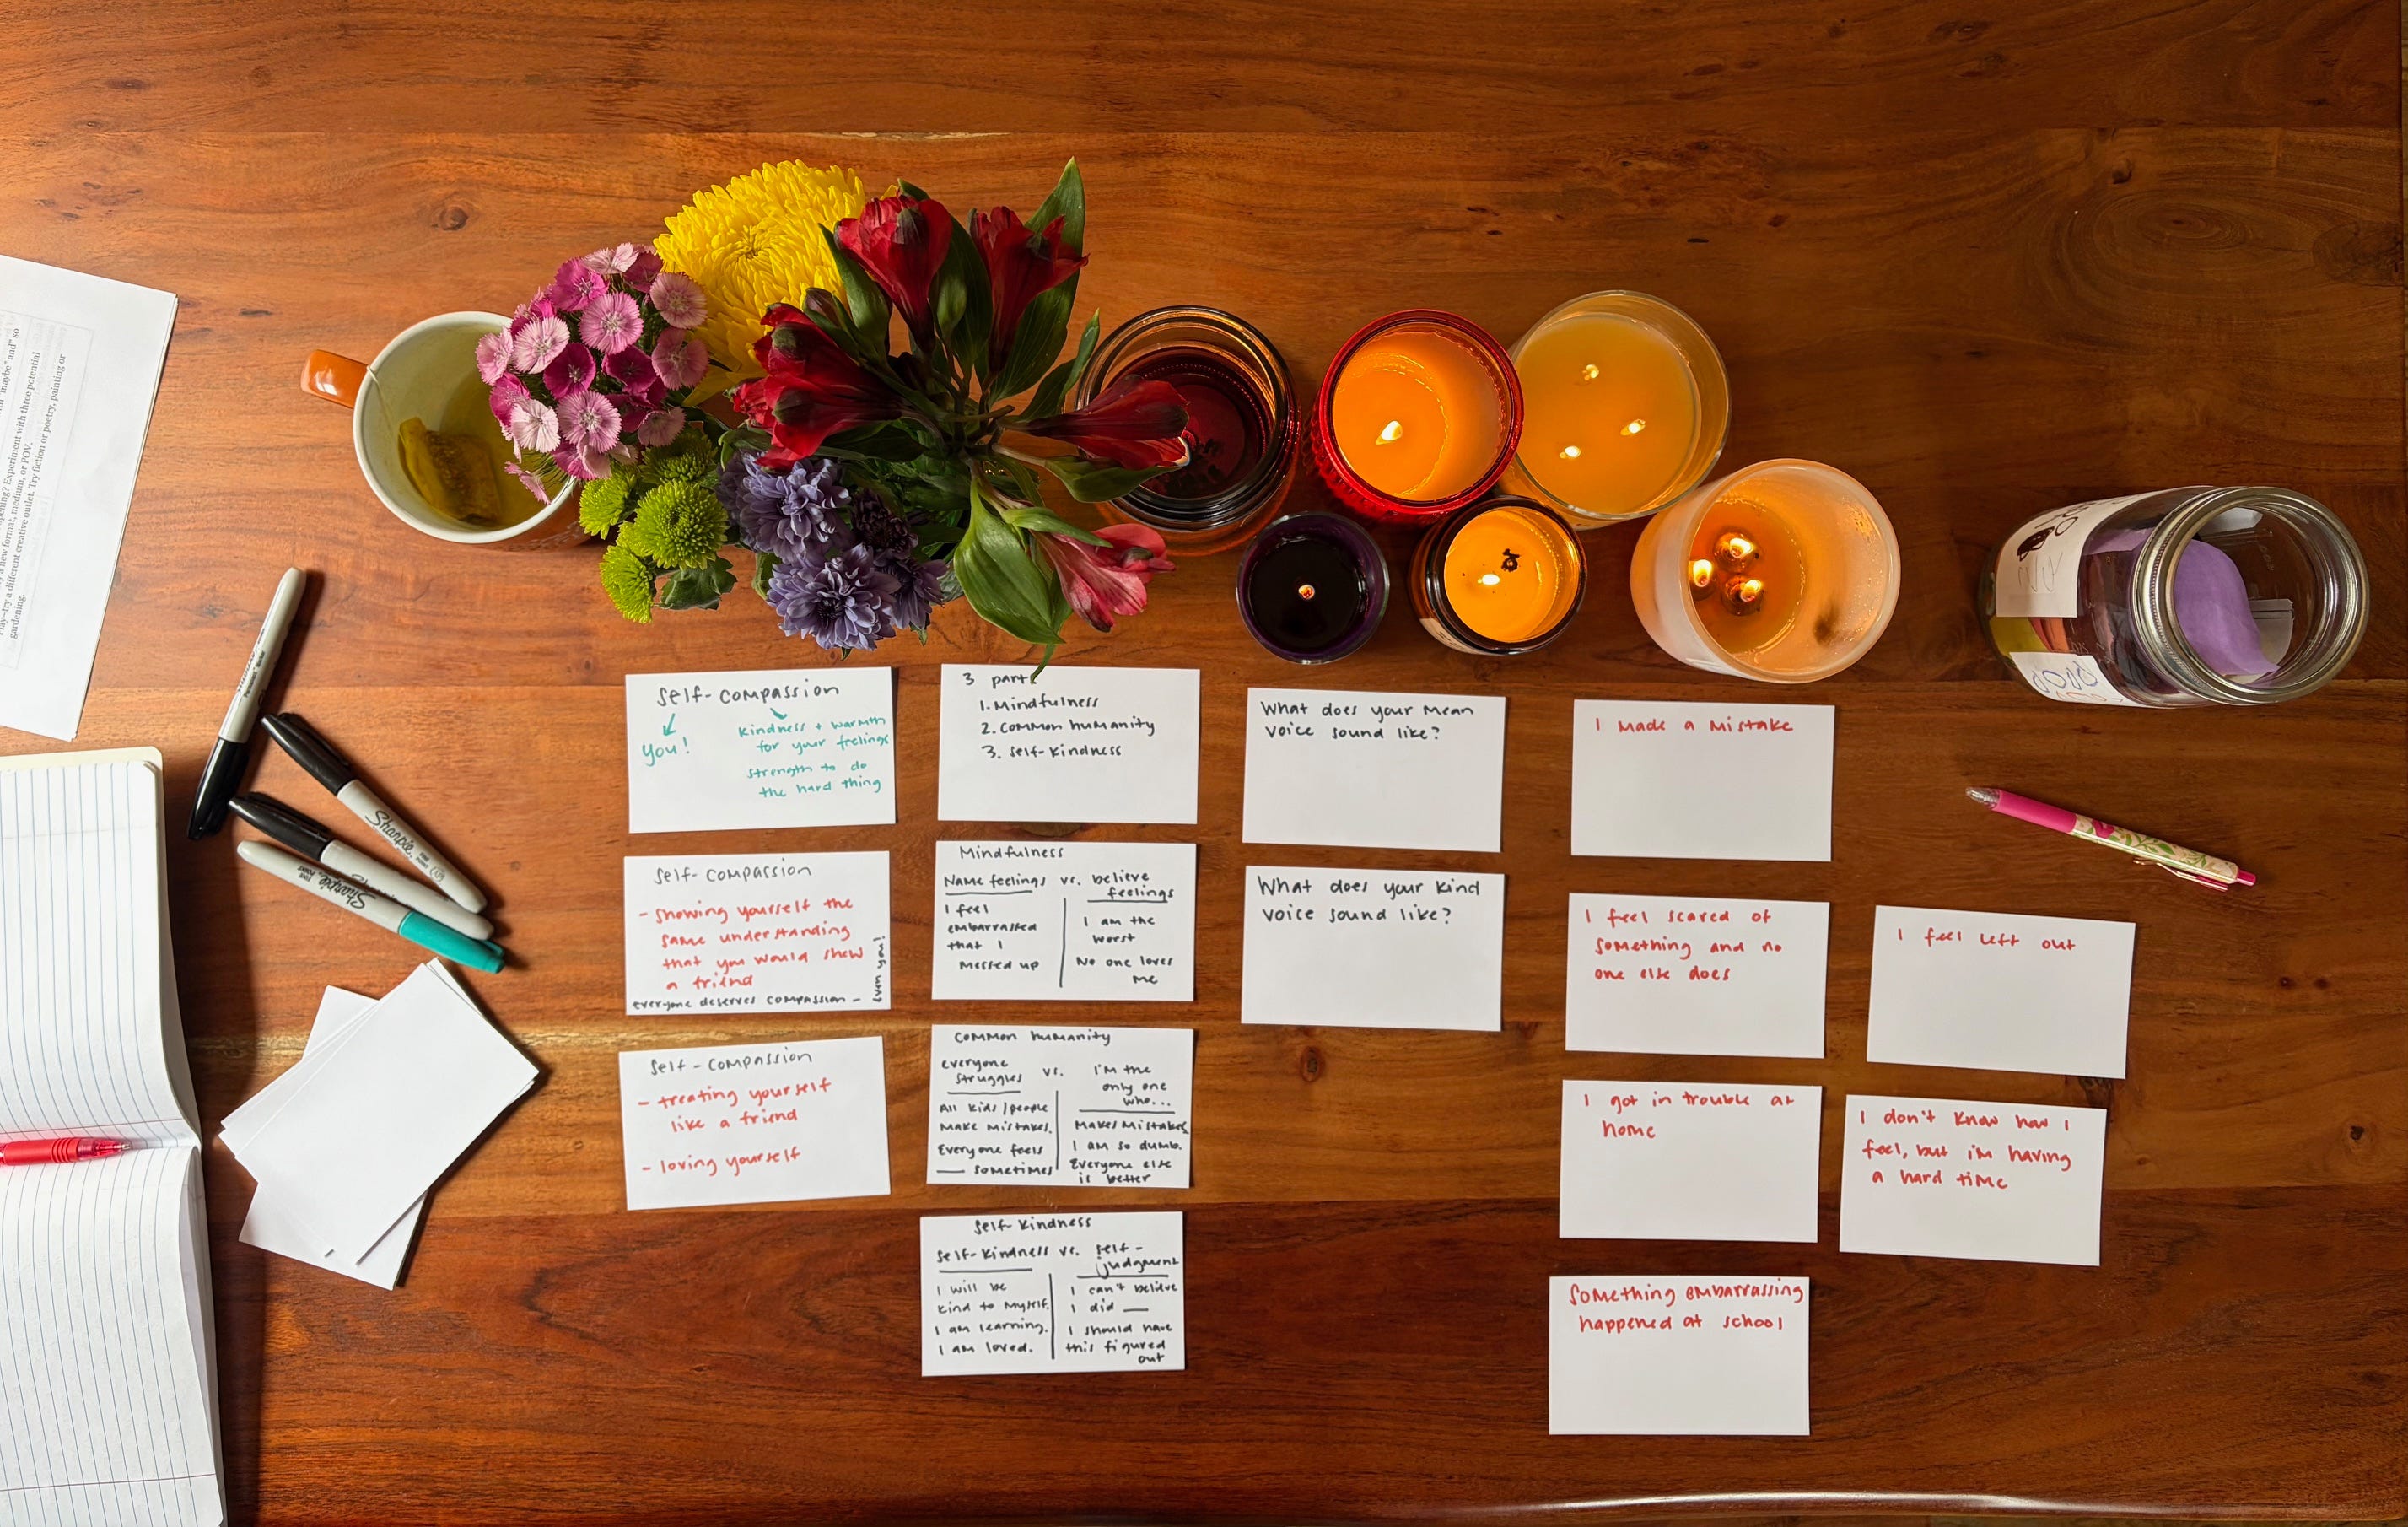 "maybe" and" so
opening? Experiment with three potential
a new format, medium, or POV.
Play—try a different creative outlet. Try fiction or poetry, painting or
gardening.
Sharpie
Sharpie
self-compassion
you!
kindness + warmth
for your feelings
strength to do
the hard thing
self-compassion
- showing yourself the
same understanding
that you would show
a friend
everyone deserves compassion -
even you!
self-compassion
- treating yourself
like a friend
- loving yourself
3 part
1. Mindfulness
2. common humanity
3. self-kindness
Mindfulness
Name feelings vs. believe
feelings
I feel
embarrassed
that I
messed up
I am the
worst
No one loves
me
common humanity
everyone
struggles vs. I'm the
only one
who...
All kids/people
make mistakes.
Everyone feels
___ sometimes
makes mistakes
I am so dumb.
Everyone else
is better
self-kindness
self-kindness vs. self-
judgment
I will be
kind to myself.
I am learning.
I am loved.
I can't believe
I did ___
I should have
this figured
out
What does your mean
voice sound like?
What does your kind
voice sound like?
I made a mistake
I feel scared of
something and no
one else does
I got in trouble at
home
Something embarrassing
happened at school
I feel left out
I don't know how I
feel, but i'm having
a hard time